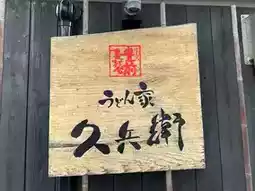 うどん家
久兵衛